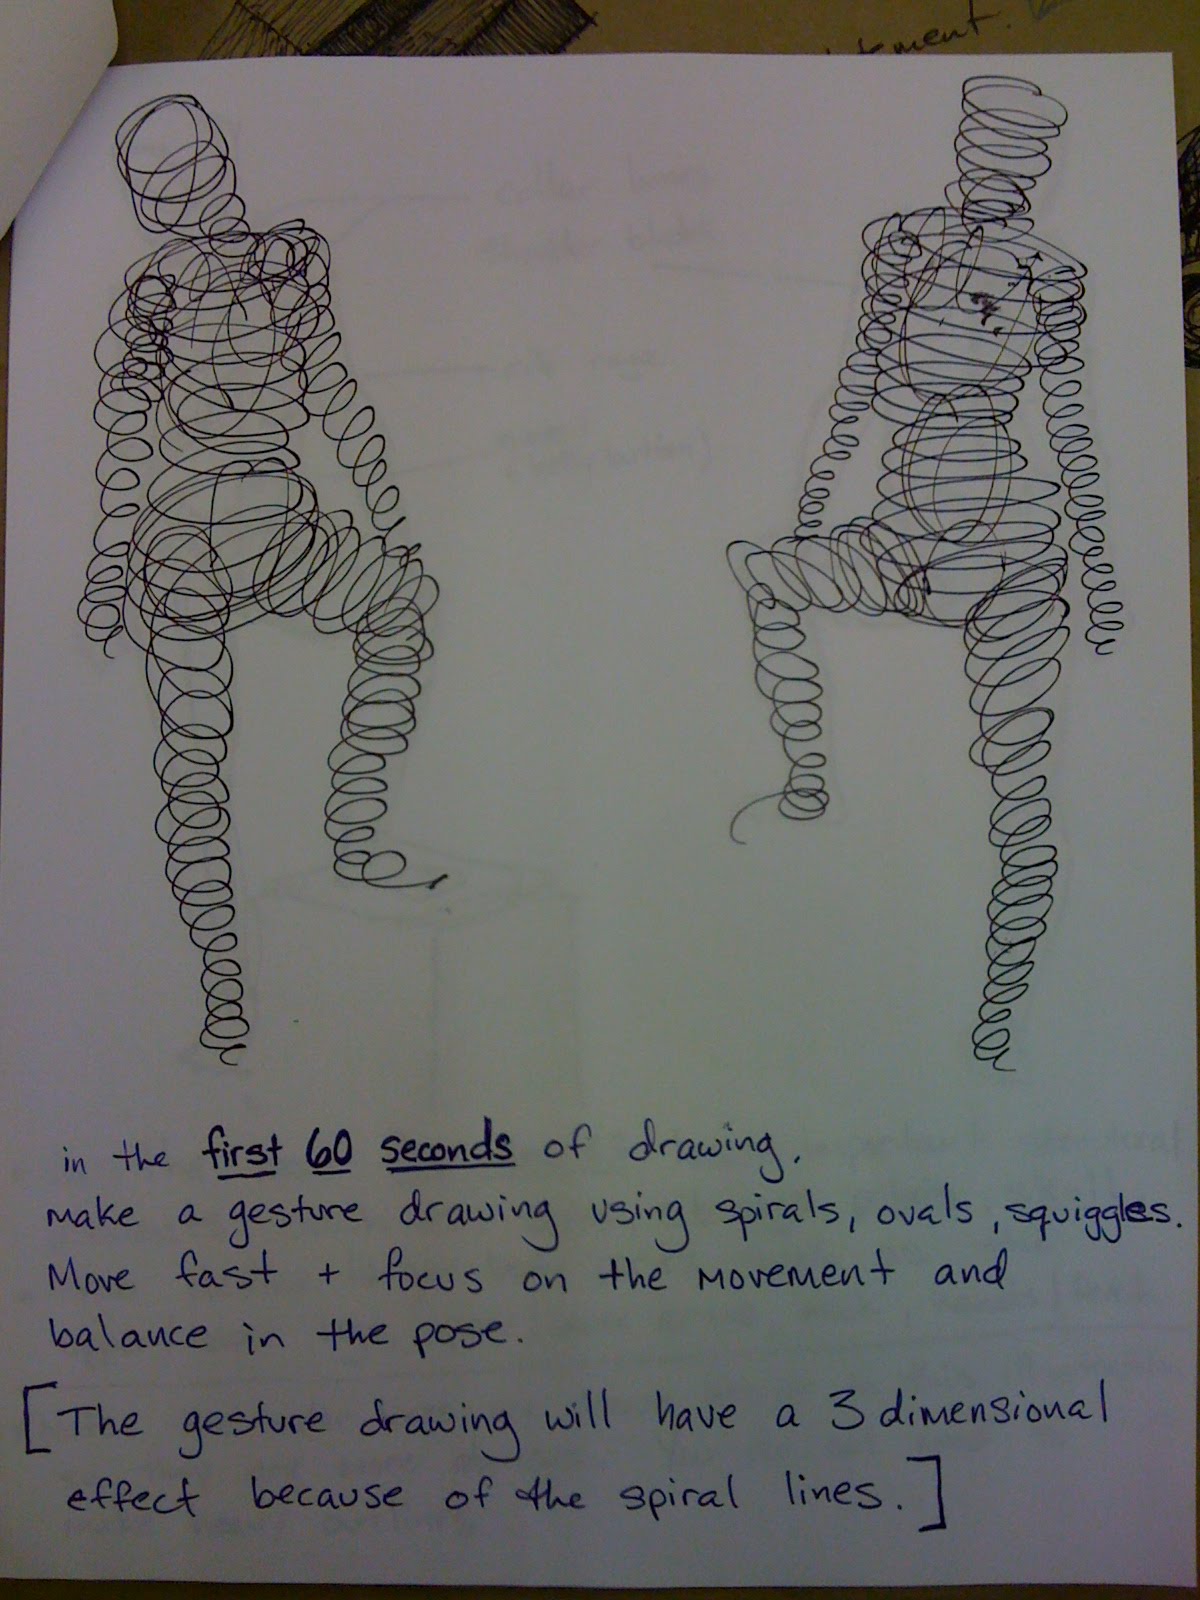 in the first 60 seconds of drawing,
make a gesture drawing using spirals, ovals, squiggles.
Move fast + focus on the movement and
balance in the pose.
[The gesture drawing will have a 3 dimensional
effect because of the spiral lines.]